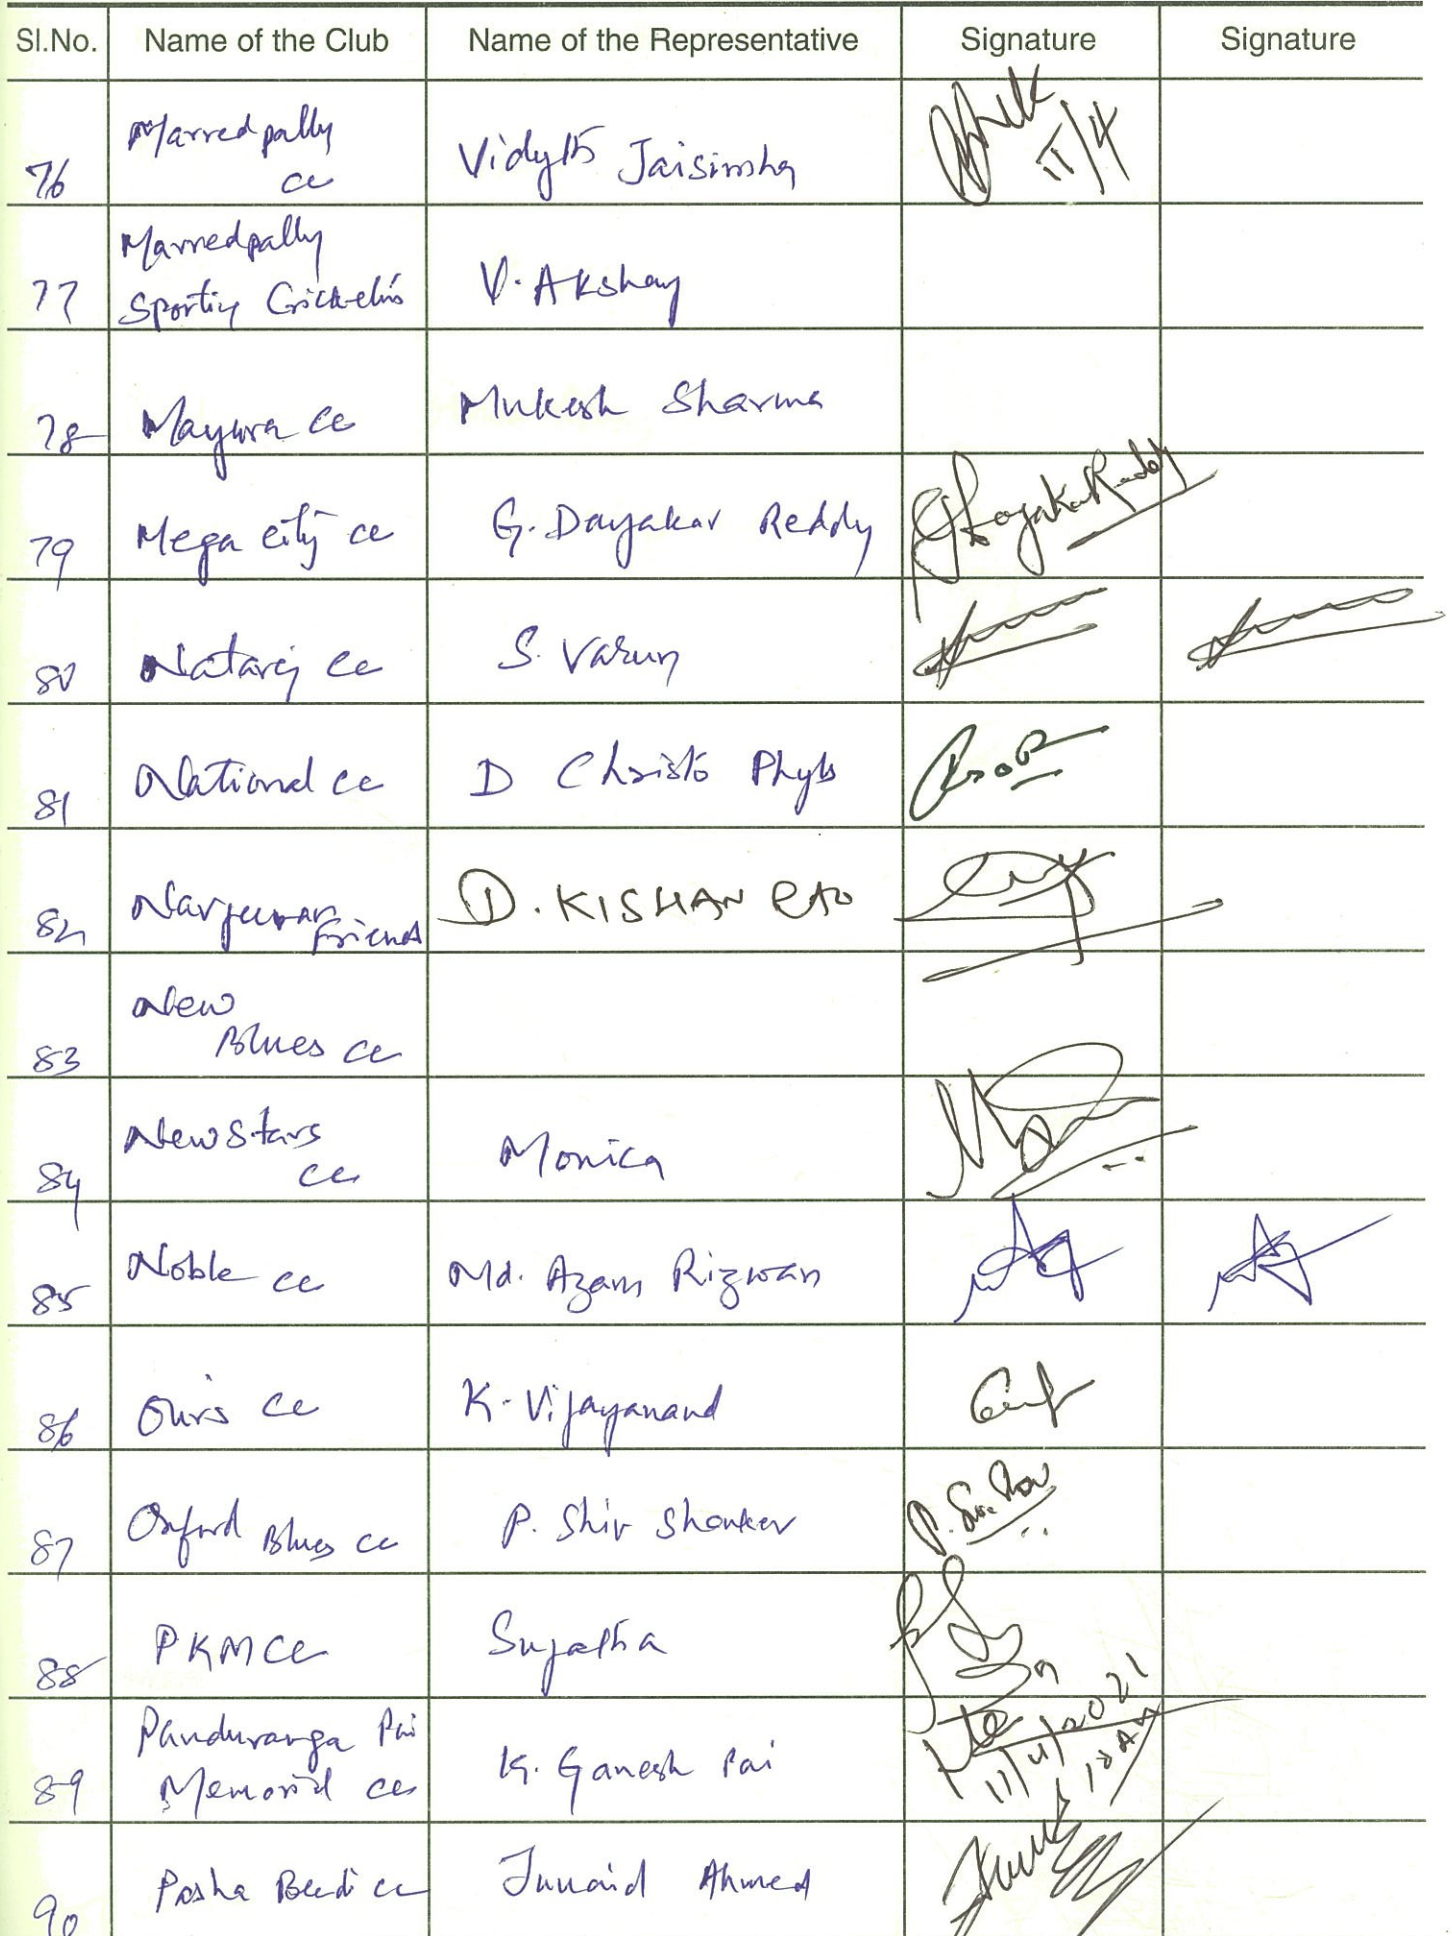 Sl.No. Name of the Club Name of the Representative Signature Signature
76 Marredpally CC Vidyth Jaisimha 11/4
77 Marredpally Sporting V. Akshay
78 Mayura CC Mukesh Sharma
79 Mega City CC G. Dayakar Reddy
80 Nataraj CC S. Varun
81 National CC D Christo
82 Navjeevan Friends D. KISHAN RAO
83 New Blues CC
84 New Stars CC Monica
85 Noble CC Md. Azam Rizwan
86 Ours CC K. Vijayanand
87 Oxford Blues CC P. Shiv Shanker
88 PKMCC Sujatha
89 Panduranga Pai Memorial CC K. Ganesh Pai 11/4/2021 10 AM
90 Pasha Beedi CC Junaid Ahmed